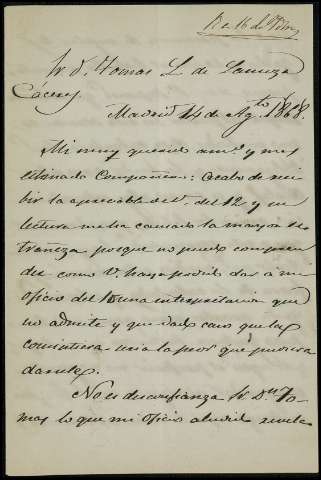 Sr. D. Tomas L. de
Cáceres
Madrid 14 de Agto. 1868.
Mi muy querido amº y mi
estimado Compañero: Acabo de reci
bir la apreciable de V. del 12 y su
lectura me ha causado la mayor es
trañeza porque no puedo compren
der como V. haya podido dar á mi
oficio del 10 una interpretacion que
no admite y que dado caso que la
consintiera seria la peor que pudiera
darsele.
No es desconfianza Sr. Dn. To
mas lo que mi oficio